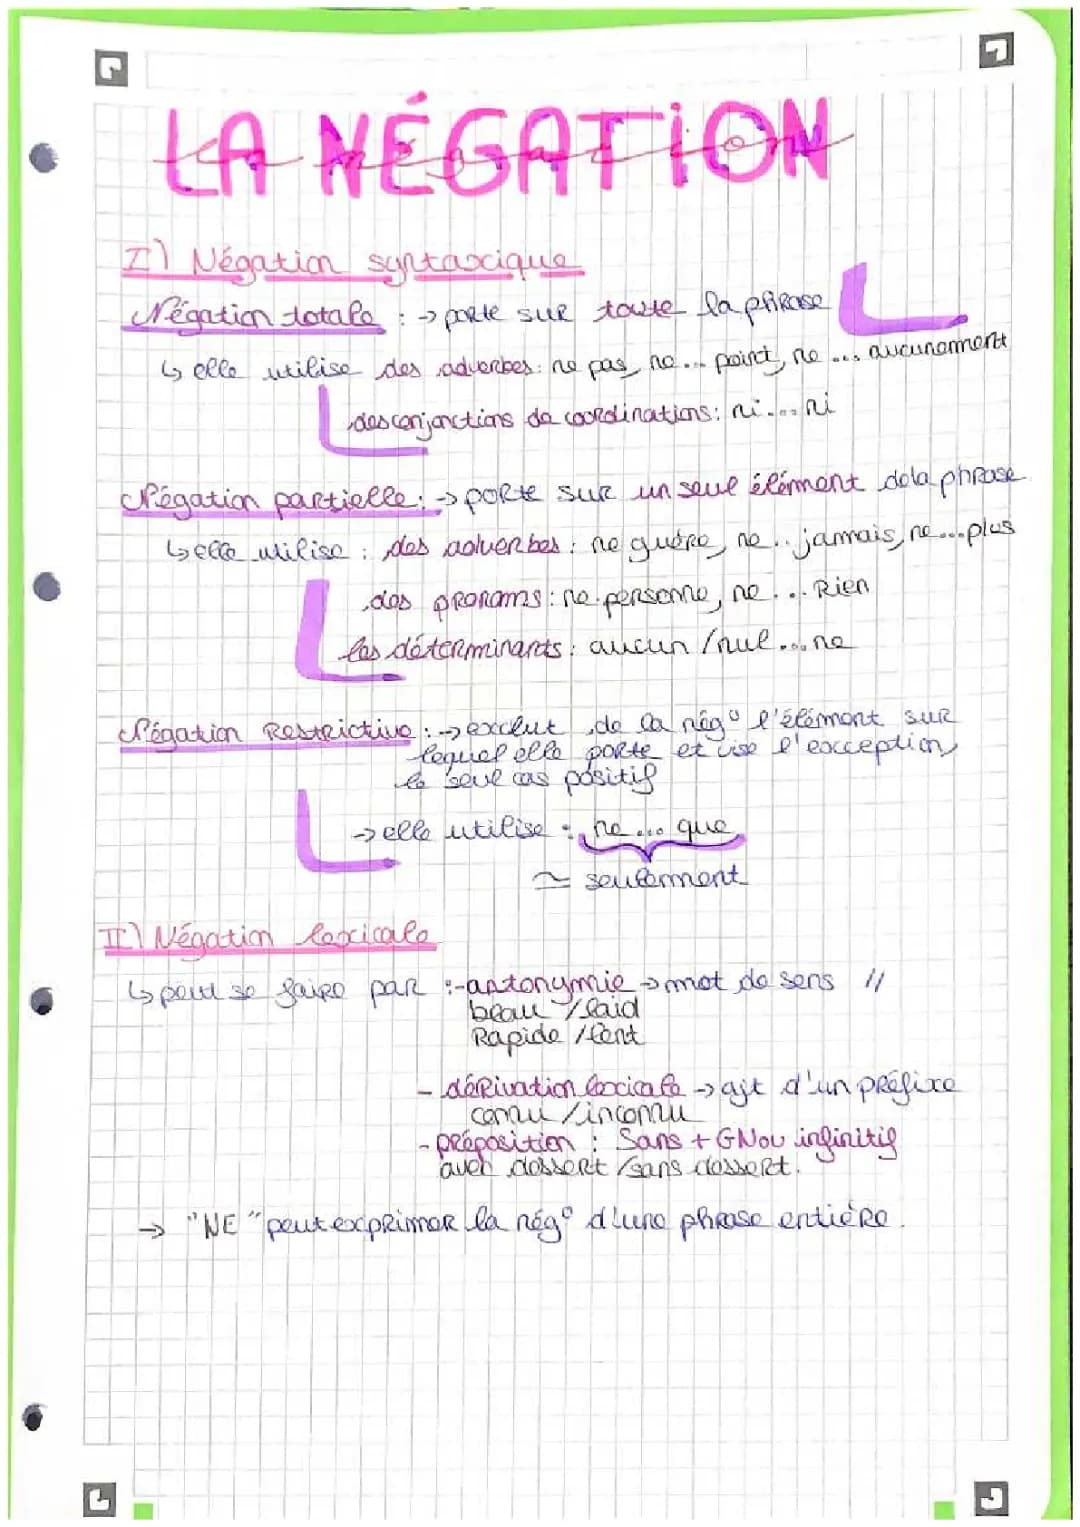 LA NÉGATION
I) Négation syntaxique
Négation totale : → porte sur toute la phrase
↳ elle utilise des adverbes : ne pas, ne ... point, ne ... aucunement
des conjonctions de coordinations : ni ... ni
Négation partielle : → porte sur un seul élément de la phrase
↳ elle utilise : des adverbes : ne guère, ne .. jamais, ne ... plus
des pronoms : ne personne, ne ... Rien
les déterminants : aucun / nul ... ne
Négation Restrictive : → exclut de la nég° l'élément sur
lequel elle porte et vise l'exception,
le seul cas positif
→ elle utilise : ne ... que
≃ seulement
II) Négation lexicale
↳ peut se faire par : - antonymie → mot de sens //
beau / laid
Rapide / lent
- dérivation lexicale → ajt d'un préfixe
connu / inconnu
- préposition : Sans + GN ou infinitif
avec dessert / sans dessert.
→ "NE" peut exprimer la nég° d'une phrase entière.